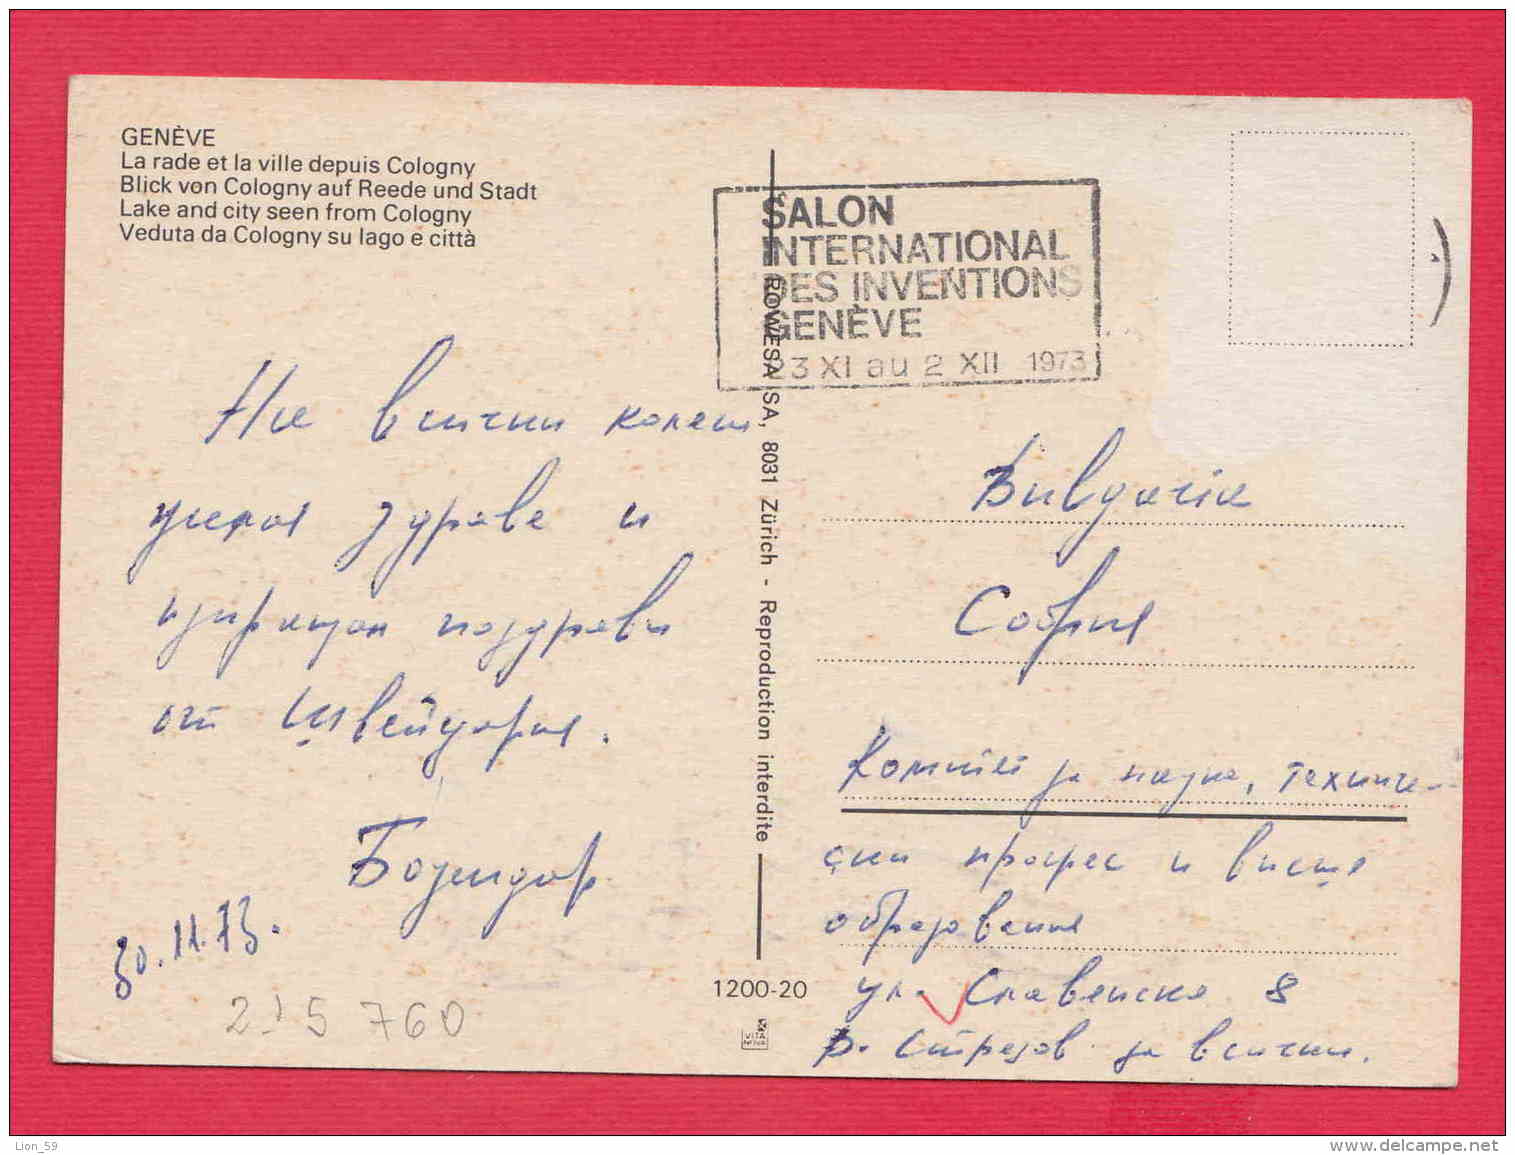 GENÈVE
La rade et la ville depuis Cologny
Blick von Cologny auf Reede und Stadt
Lake and city seen from Cologny
Veduta da Cologny su lago e città
SALON
INTERNATIONAL
DES INVENTIONS
GENÈVE
23 XI au 2 XII 1973
ROWESA SA, 8031 Zürich - Reproduction interdite
На всички колеги
желая здраве и
изпращам поздрави
от Швейцария.
Божидар
30.11.73.
215 760
1200-20
VITA NOVA
Bulgaria
София
Комитет за наука, техниче-
ски прогрес и висше
образование
ул. Славянска 8
Стрезов за всички.
Lion_59
www.delcampe.net